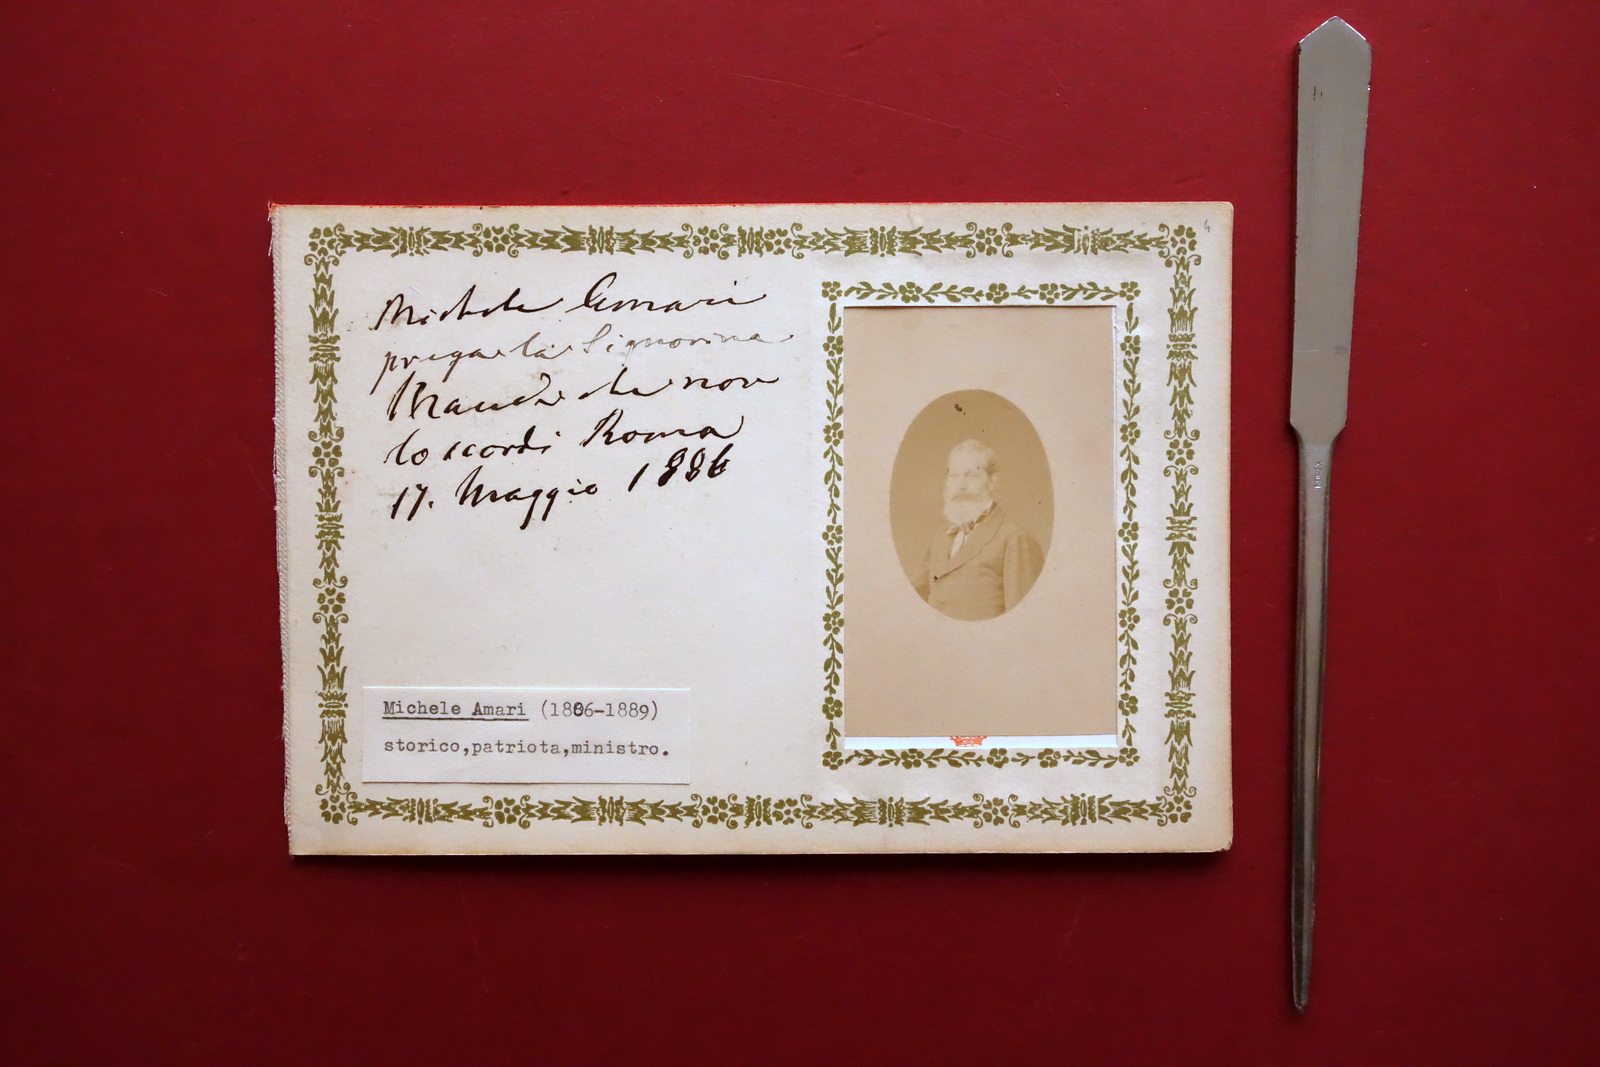 Michele Amari
prega la Signorina
Maude che non
lo scordi Roma
17. Maggio 1886
Michele Amari (1806-1889)
storico,patriota,ministro.